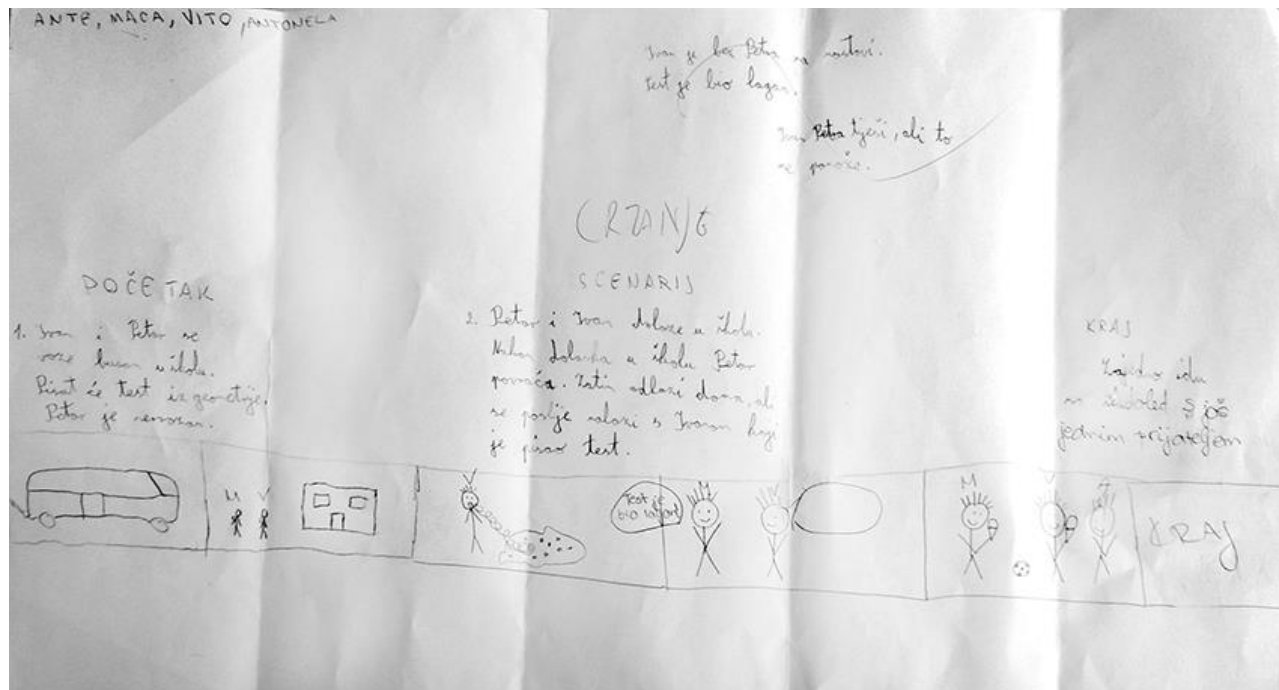 ANTE, MACA, VITO, ANTONELA
Ivan je bez Petra na nastavi.
Test je bio lagan.
Ivan Petra tješi, ali to
ne pomaže.
CRTANJE
SCENARIJ
POČETAK
1. Ivan i Petar se
voze busom u školu.
Pisat će test iz geometrije.
Petar je nervozan.
2. Petar i Ivan dolaze u školu.
Nakon dolaska u školu Petar
povraća. Zatim odlazi doma, ali
se poslije nalazi s Ivanom koji
je pisao test.
KRAJ
Zajedno idu
na sladoled s još
jednim prijateljem
M V
V
Test je
bio
M
M V A
KRAJ